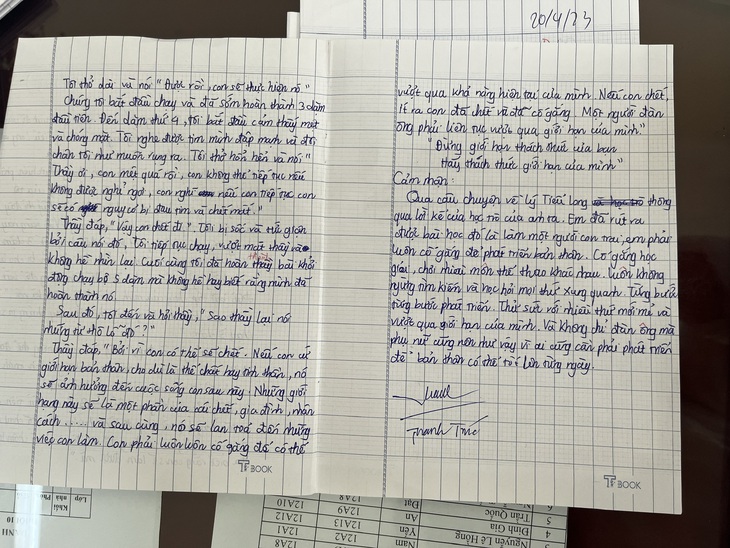 20/4/23
Tôi thở dài và nói "Được rồi, con sẽ thực hiện nó"
Chúng tôi bắt đầu chạy và đã sớm hoàn thành 3 dặm
đầu tiên. Đến dặm thứ 4, tôi bắt đầu cảm thấy mệt
và chóng mặt. Tôi nghe được tim mình đập mạnh và đôi
chân tôi như muốn rụng ra. Tôi thở hổn hển và nói "
Thầy ơi, con mệt quá rồi, con không thể tiếp tục nếu
không được nghỉ ngơi, con nghĩ nếu con tiếp tục con
sẽ có nguy cơ bị đau tim và chết mất."
Thầy đáp, "Vậy con chết đi." Tôi bị sốc và tức giận
bởi câu nói đó, tôi tiếp tục chạy, vượt mặt thầy và
không hề nhìn lại. Cuối cùng tôi đã hoàn thành bài khởi
động chạy bộ 5 dặm mà không hề hay biết rằng mình đã
hoàn thành nó.
Sau đó, tôi đến và hỏi thầy, "Sao thầy lại nó
những từ thô lỗ đó?"
Thầy đáp: "Bởi vì con có thể sẽ chết. Nếu con cứ
giới hạn bản thân, cho dù là thể chất hay tinh thần, nó
sẽ ảnh hưởng đến cuộc sống con sau này. Những giới
hạng này sẽ là một phần của cái chết, gia đình, nhân
cách ...... và sau cùng, nó sẽ lan toả đến những
việc con làm. Con phải luôn luôn cố gắng để có thể
T BOOK
vượt qua khả năng hiện tại của mình. Nếu con chết,
ít ra con đã chết vì đã cố gắng. Một người đàn
ông phải liên tục vượt qua giới hạn của mình"
"Đừng giới hạn thách thức của bạn
Hãy thách thức giới hạn của mình"
Cảm nhận:
Qua câu chuyện về Lý Tiểu Long thông
qua lời kể của học trò của anh ta. Em đã rút ra
được bài học đó là làm một người con trai, em phải
luôn cố gắng để phát triển bản thân. Cố gắng học
giỏi, chơi nhiều môn thể thao khác nhau. Luôn không
ngừng tìm kiếm và học hỏi mọi thứ xung quanh. Từng bước
từng bước phát triển. Thử sức với nhiều thứ mới mẻ và
vượt qua giới hạn của mình. Và không chỉ đàn ông mà
phụ nữ cũng nên như vậy vì ai cũng cần phải phát triển
để bản thân có thể tốt lên từng ngày.
Thanh Trúc
T BOOK
Khối
Lớp
nhà
12A8
12A10
12A9
12A12
12A13
12A1
12A2
12A8
Đạt
An
Yên
Nam
Trần Quốc
Đinh Gia
Nguyễn Lê Hồng
6
5
4
3